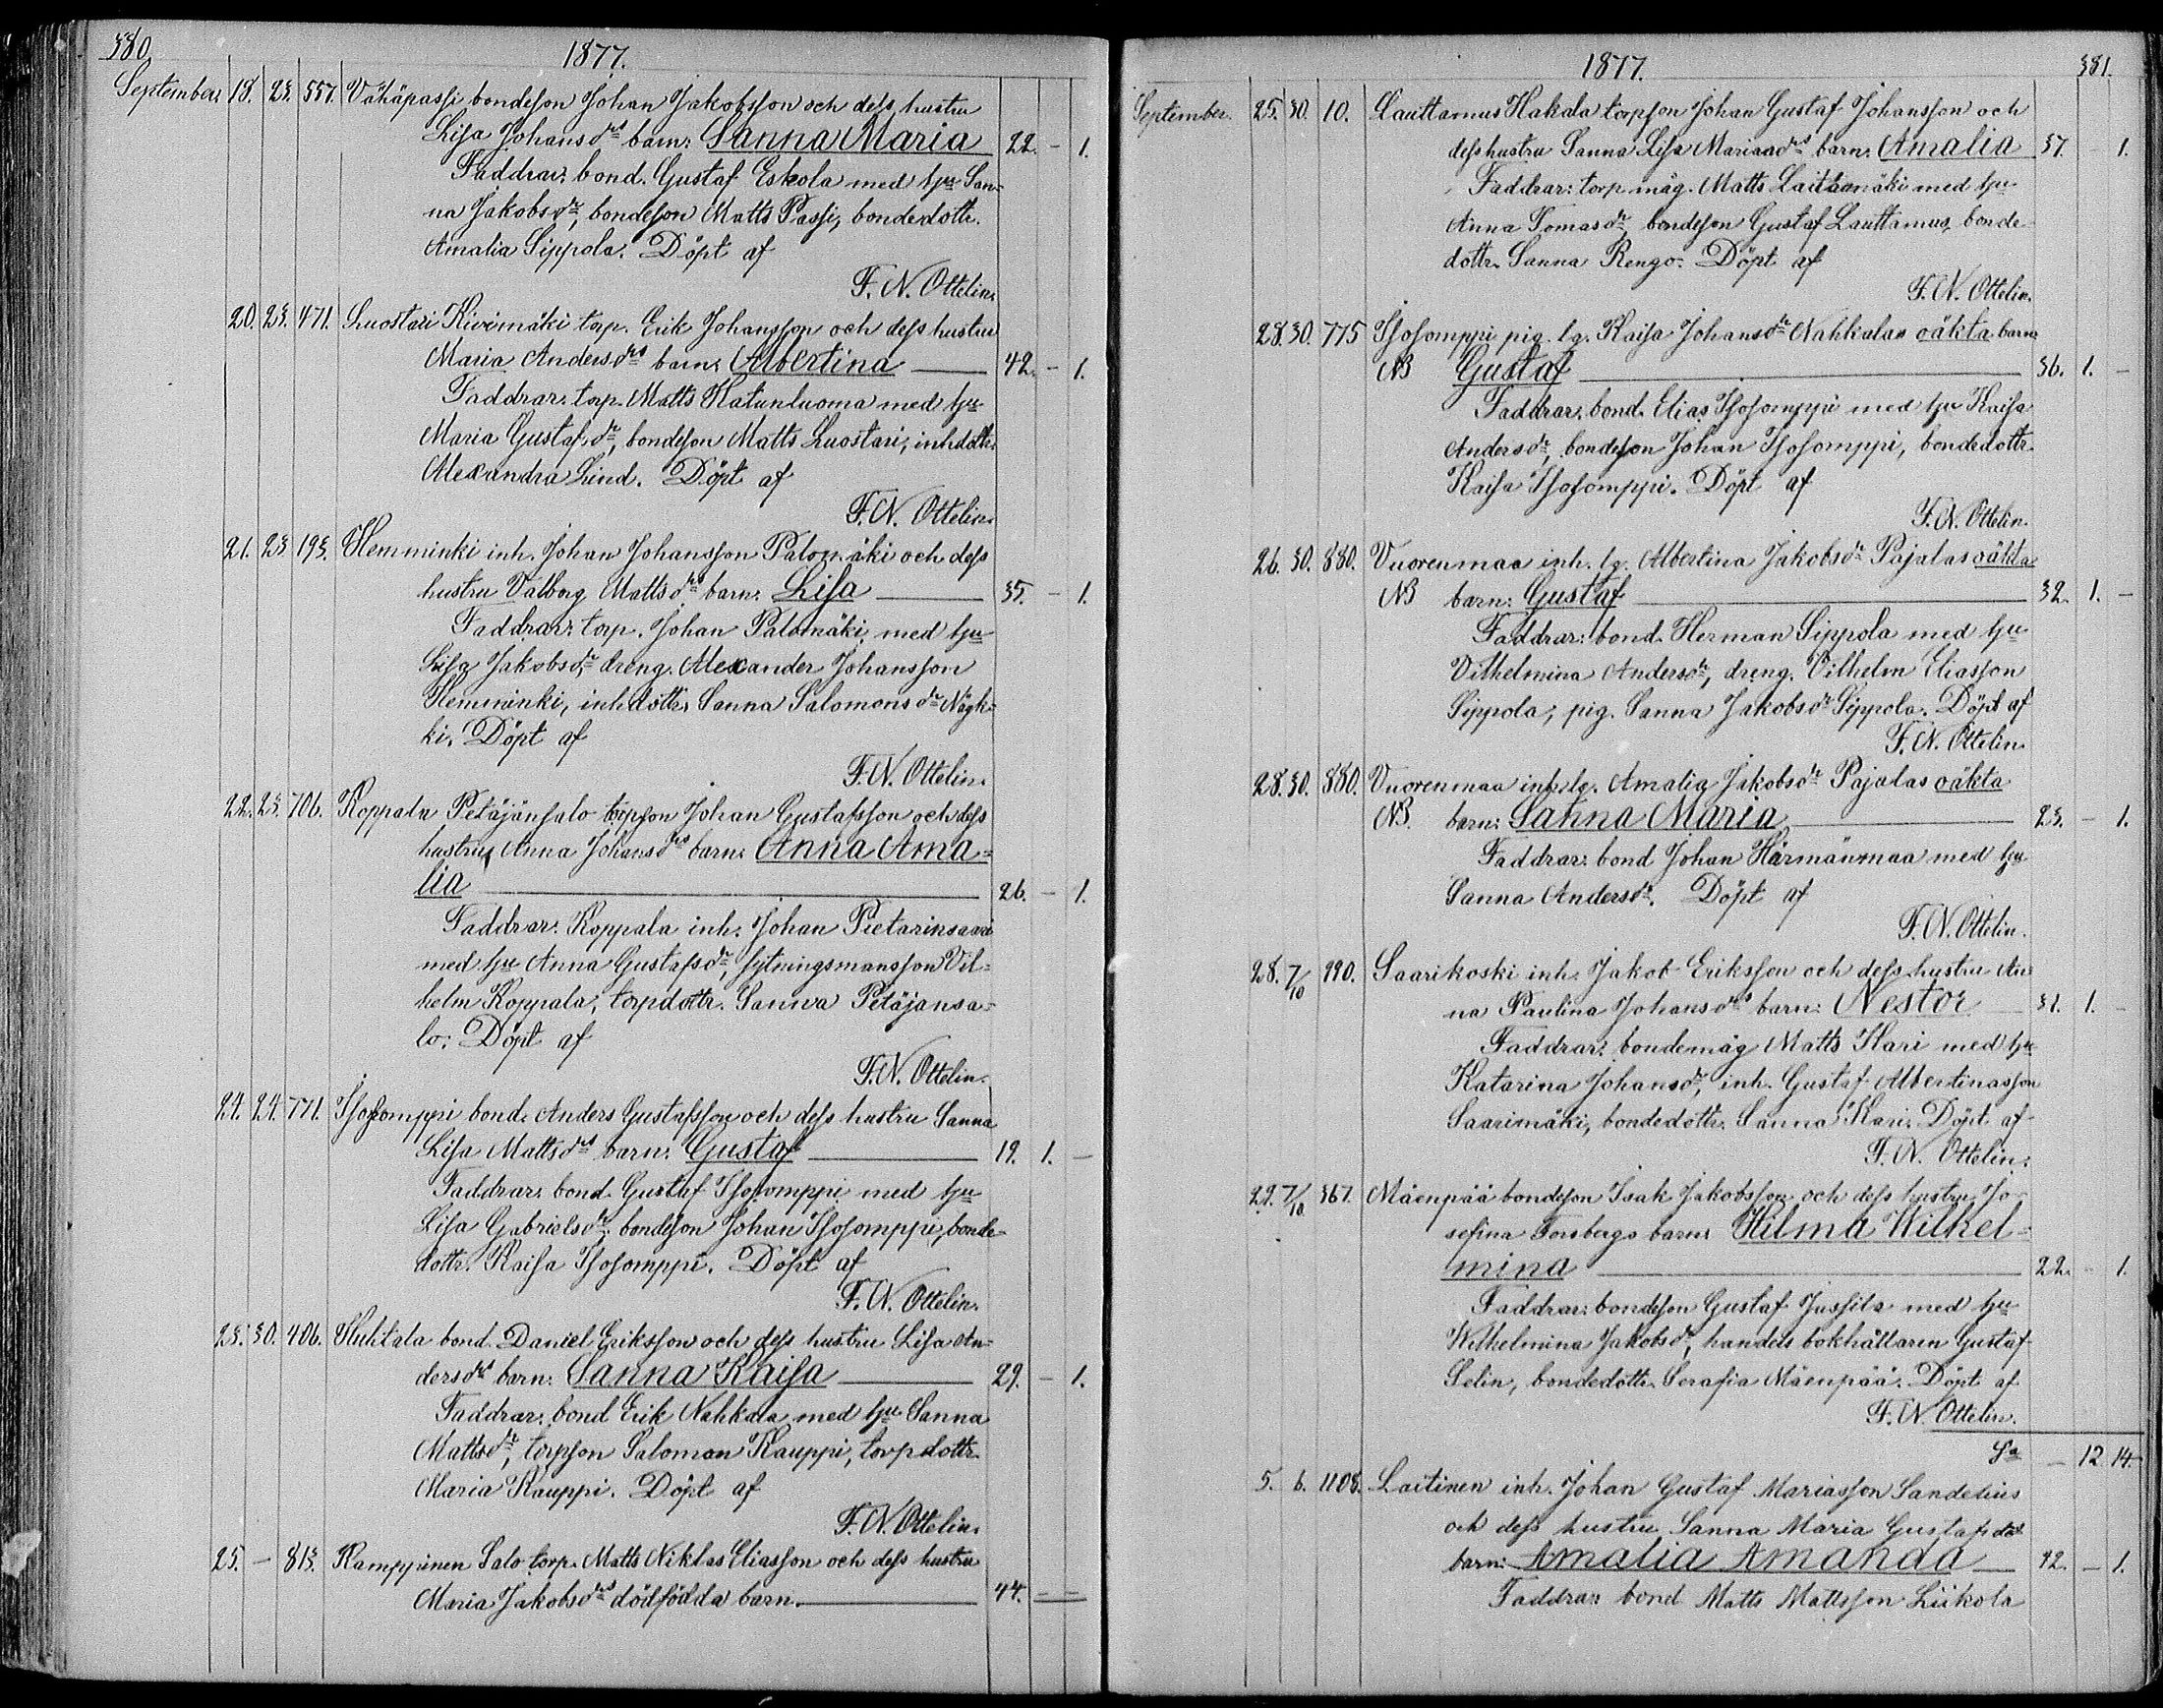 380.
1877.
September. 18. 23. 557. Vähäpassi bondeson Johan Jakobsson och dess hustru
Lisa Johansdrs barn: Sanna Maria 22. - 1.
Faddrar: bond. Gustaf Eskola med hu San-
na Jakobsdr, bondeson Matts Passi, bondedottr.
Amalia Sippola. Döpt af
F. N. Ottelin.
20. 23. 471. Luostari Kivimäki torp. Erik Johansson och dess hustru
Maria Andersdrs barn: Albertina 42. - 1.
Faddrar: torp. Matts Katunluoma med hu
Maria Gustafsdr, bondeson Matts Luostari, inhdottr.
Alexandra Lind. Döpt af
F. N. Ottelin.
21. 23. 193. Hemminki inh. Johan Johansson Palomäki och dess
hustru Valborg Mattsdrs barn: Lisa 35. - 1.
Faddrar: torp. Johan Palomäki med hu
Lisa Jakobsdr, dreng. Alexander Johansson
Hemminki, inhdottr. Sanna Salomonsdr Nägk-
ki. Döpt af
F. N. Ottelin.
22. 23. 706. Koppala Petäjänsalo torpson Johan Gustafsson och dess
hustru Anna Johansdrs barn: Anna Ama-
lia 26. - 1.
Faddrar: Koppala inh. Johan Pietarinsaari
med hu Anna Gustafsdr, sytningsmansson Vil-
helm Koppala, torpdottr. Sanna Petäjänsa-
lo. Döpt af
F. N. Ottelin.
24. 24. 771. Isosomppi bond. Anders Gustafsson och dess hustru Sanna
Lisa Mattsdrs barn: Gustaf 19. 1. -
Faddrar: bond. Gustaf Isosomppi med hu
Lisa Gabrielsdr, bondeson Johan Isosomppi, bonde-
dottr. Kaisa Isosomppi. Döpt af
F. N. Ottelin.
23. 30. 406. Huhtala bond. Daniel Eriksson och dess hustru Lisa An-
dersdrs barn: Sanna Kaisa 29. - 1.
Faddrar: bond Erik Nahkala med hu Sanna
Mattsdr, torpson Salomon Kauppi, torpdottr.
Maria Kauppi. Döpt af
F. N. Ottelin.
25. - 813. Kamppinen Salo torp. Matts Niklas Eliasson och dess hustru
Maria Jakobsdrs dödfödda barn. 44. - -
1877.
381.
September. 25. 30. 10. Lauttamus Hakala torpson Johan Gustaf Johansson och
dess hustru Sanna Lisa Mariasdrs barn: Amalia 37. - 1.
Faddrar: torp. måg. Matts Laitamäki med hu
Anna Tomasdr, bondeson Gustaf Lauttamus, bonde-
dottr. Sanna Rengo. Döpt af
F. N. Ottelin.
28. 30. 775 Isosomppi pig. lg. Kaisa Johansdr Nahkalas oäkta barn
NB Gustaf 36. 1. -
Faddrar: bond. Elias Isosomppi med hu Kaisa
Andersdr, bondeson Johan Isosomppi, bondedottr.
Kaisa Isosomppi. Döpt af
F. N. Ottelin.
26. 30. 880. Vuorenmaa inh. lg. Albertina Jakobsdr Pajalas oäkta
NB barn: Gustaf 32. 1. -
Faddrar: bond. Herman Sippola med hu
Vilhelmina Andersdr, dreng. Vilhelm Eliasson
Sippola, pig. Sanna Jakobsdr Sippola. Döpt af
F. N. Ottelin.
28. 30. 880. Vuorenmaa inh. lg. Amalia Jakobsdr Pajalas oäkta
NB. barn: Sanna Maria 23. - 1.
Faddrar: bond Johan Härmänmaa med hu
Sanna Andersdr. Döpt af
F. N. Ottelin.
28. 7/10 990. Saarikoski inh. Jakob Eriksson och dess hustru An-
na Paulina Johansdrs barn: Nestor 31. 1. -
Faddrar: bondemåg Matts Kari med hu
Katarina Johansdr, inh. Gustaf Albertinasson
Saarimäki, bondedottr. Sanna Kari. Döpt af
F. N. Ottelin.
29. 7/10 367. Mäenpää bondeson Isak Jakobsson och dess hustru Jo-
sefina Forsbergs barn: Hilma Wilhel-
mina 22. - 1.
Faddrar: bondeson Gustaf Jussila med hu
Wilhelmina Jakobsdr, handels bokhållaren Gustaf
Selin, bondedottr. Serafia Mäenpää. Döpt af
F. N. Ottelin.
Sa - 12 14.
5. 6. 1108. Laitinen inh. Johan Gustaf Mariasson Sandelius
och dess hustru Sanna Maria Gustafsdrs
barn: Amalia Amanda 32. - 1.
Faddrar: bond Matts Mattsson Liikola